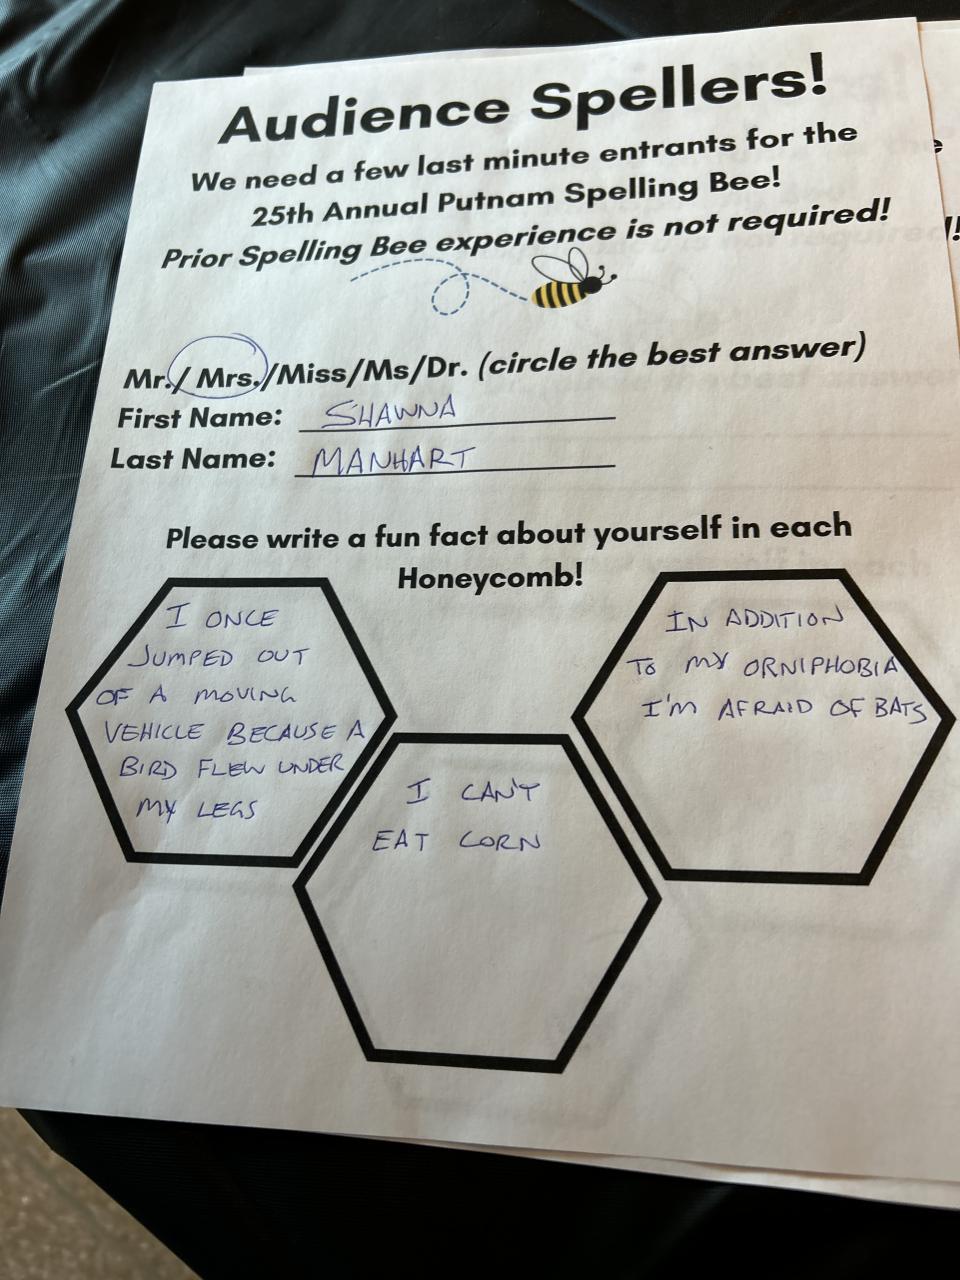 Audience Spellers!
We need a few last minute entrants for the
25th Annual Putnam Spelling Bee!
Prior Spelling Bee experience is not required!
Mr./ Mrs./Miss/Ms/Dr. (circle the best answer)
First Name: SHAWNA
Last Name: MANHART
Please write a fun fact about yourself in each
Honeycomb!
I ONCE
JUMPED OUT
OF A MOVING
VEHICLE BECAUSE A
BIRD FLEW UNDER
MY LEGS
I CAN'T
EAT CORN
IN ADDITION
TO MY ORNIPHOBIA
I'M AFRAID OF BATS